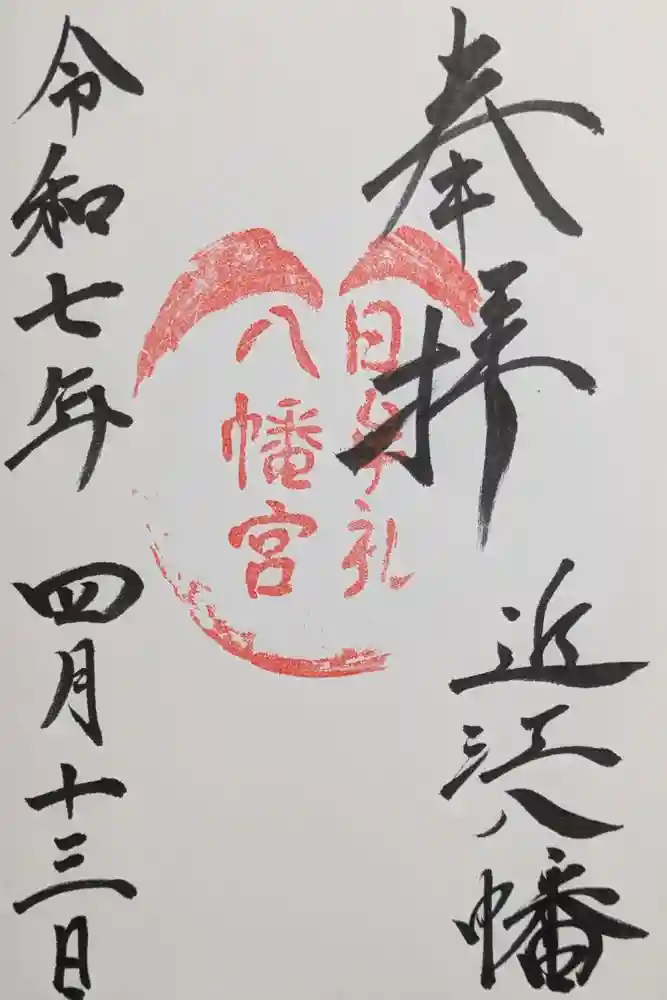 奉拝
近江八幡
日牟礼
八幡宮
令和七年 四月十三日